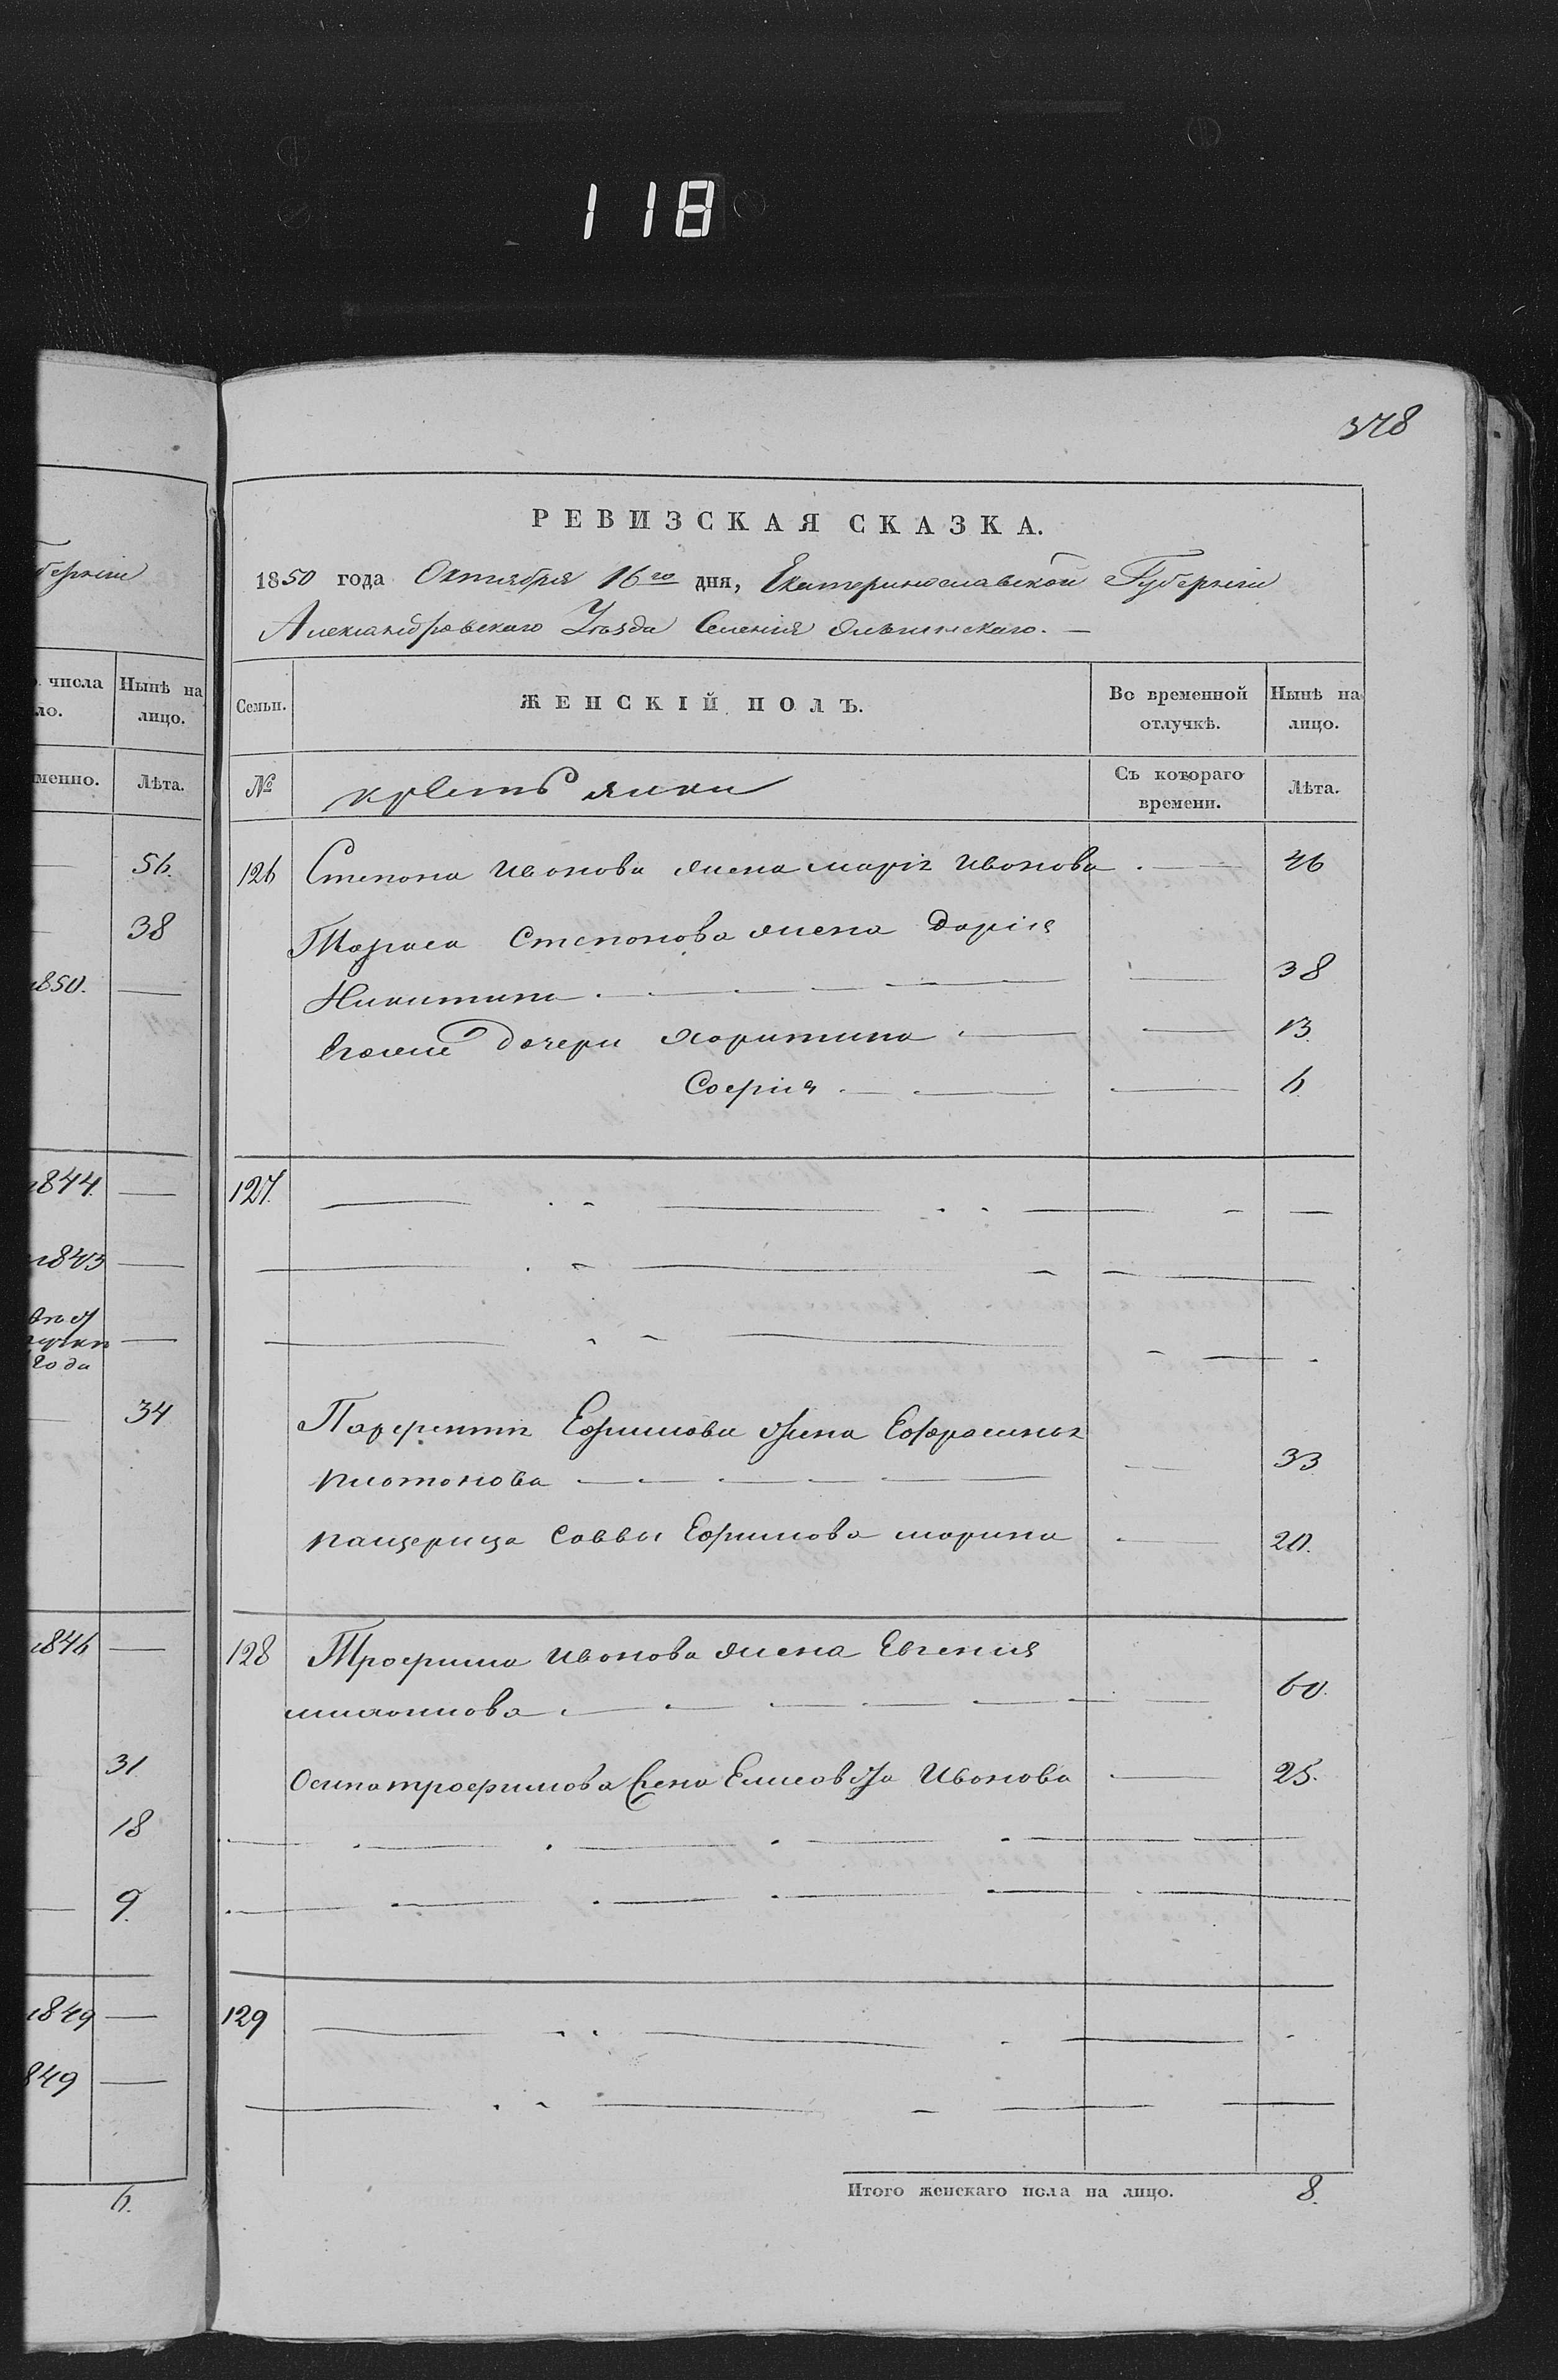 118
378
губерніи
числа
ло.
Нынѣ на
лицо.
менно.
Лѣта.
56.
38
1850.
1844.
1843
года
34
1846
31
18
9.
1849
849
6.
РЕВИЗСКАЯ СКАЗКА.
1850 года Октября 16го дня, Екатеринославской Губерніи
Александровскаго Уѣзда Селенія
Семьи.
ЖЕНСКІЙ ПОЛЪ.
Во временной
отлучкѣ.
Нынѣ на
лицо.
№
кресть янки
Съ котораго
времени.
Лѣта.
126 Степона Ивонова жена маріа Ивонова 46
Тараса Степонова жена Дарія
Никитина 38
Егоже дочери харитина 13.
Софія 6.
127.
Парфентія Ефимова жена Ефросинья
платонова 33
пащерица Саввы Ефимова марина 20.
128 Трофима Ивонова жена Евгенія
60.
Осипа трофимова жена Елисовета Ивонова 25.
129
Итого женскаго пола на лицо. 8.